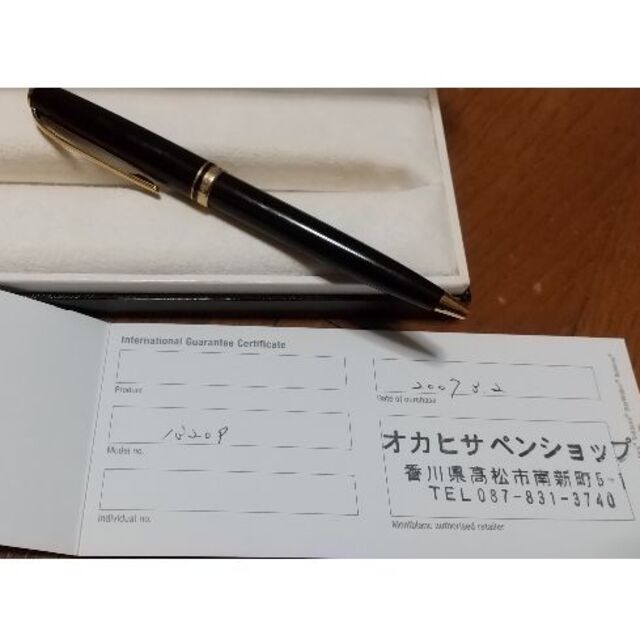 International Guarantee Certificate
Product
Model no.
Individual no.
2007 8.2
Date of purchase
オカヒサペンショップ
香川県高松市南新町5-1
TEL087-831-3740
Montblanc authorised retailer